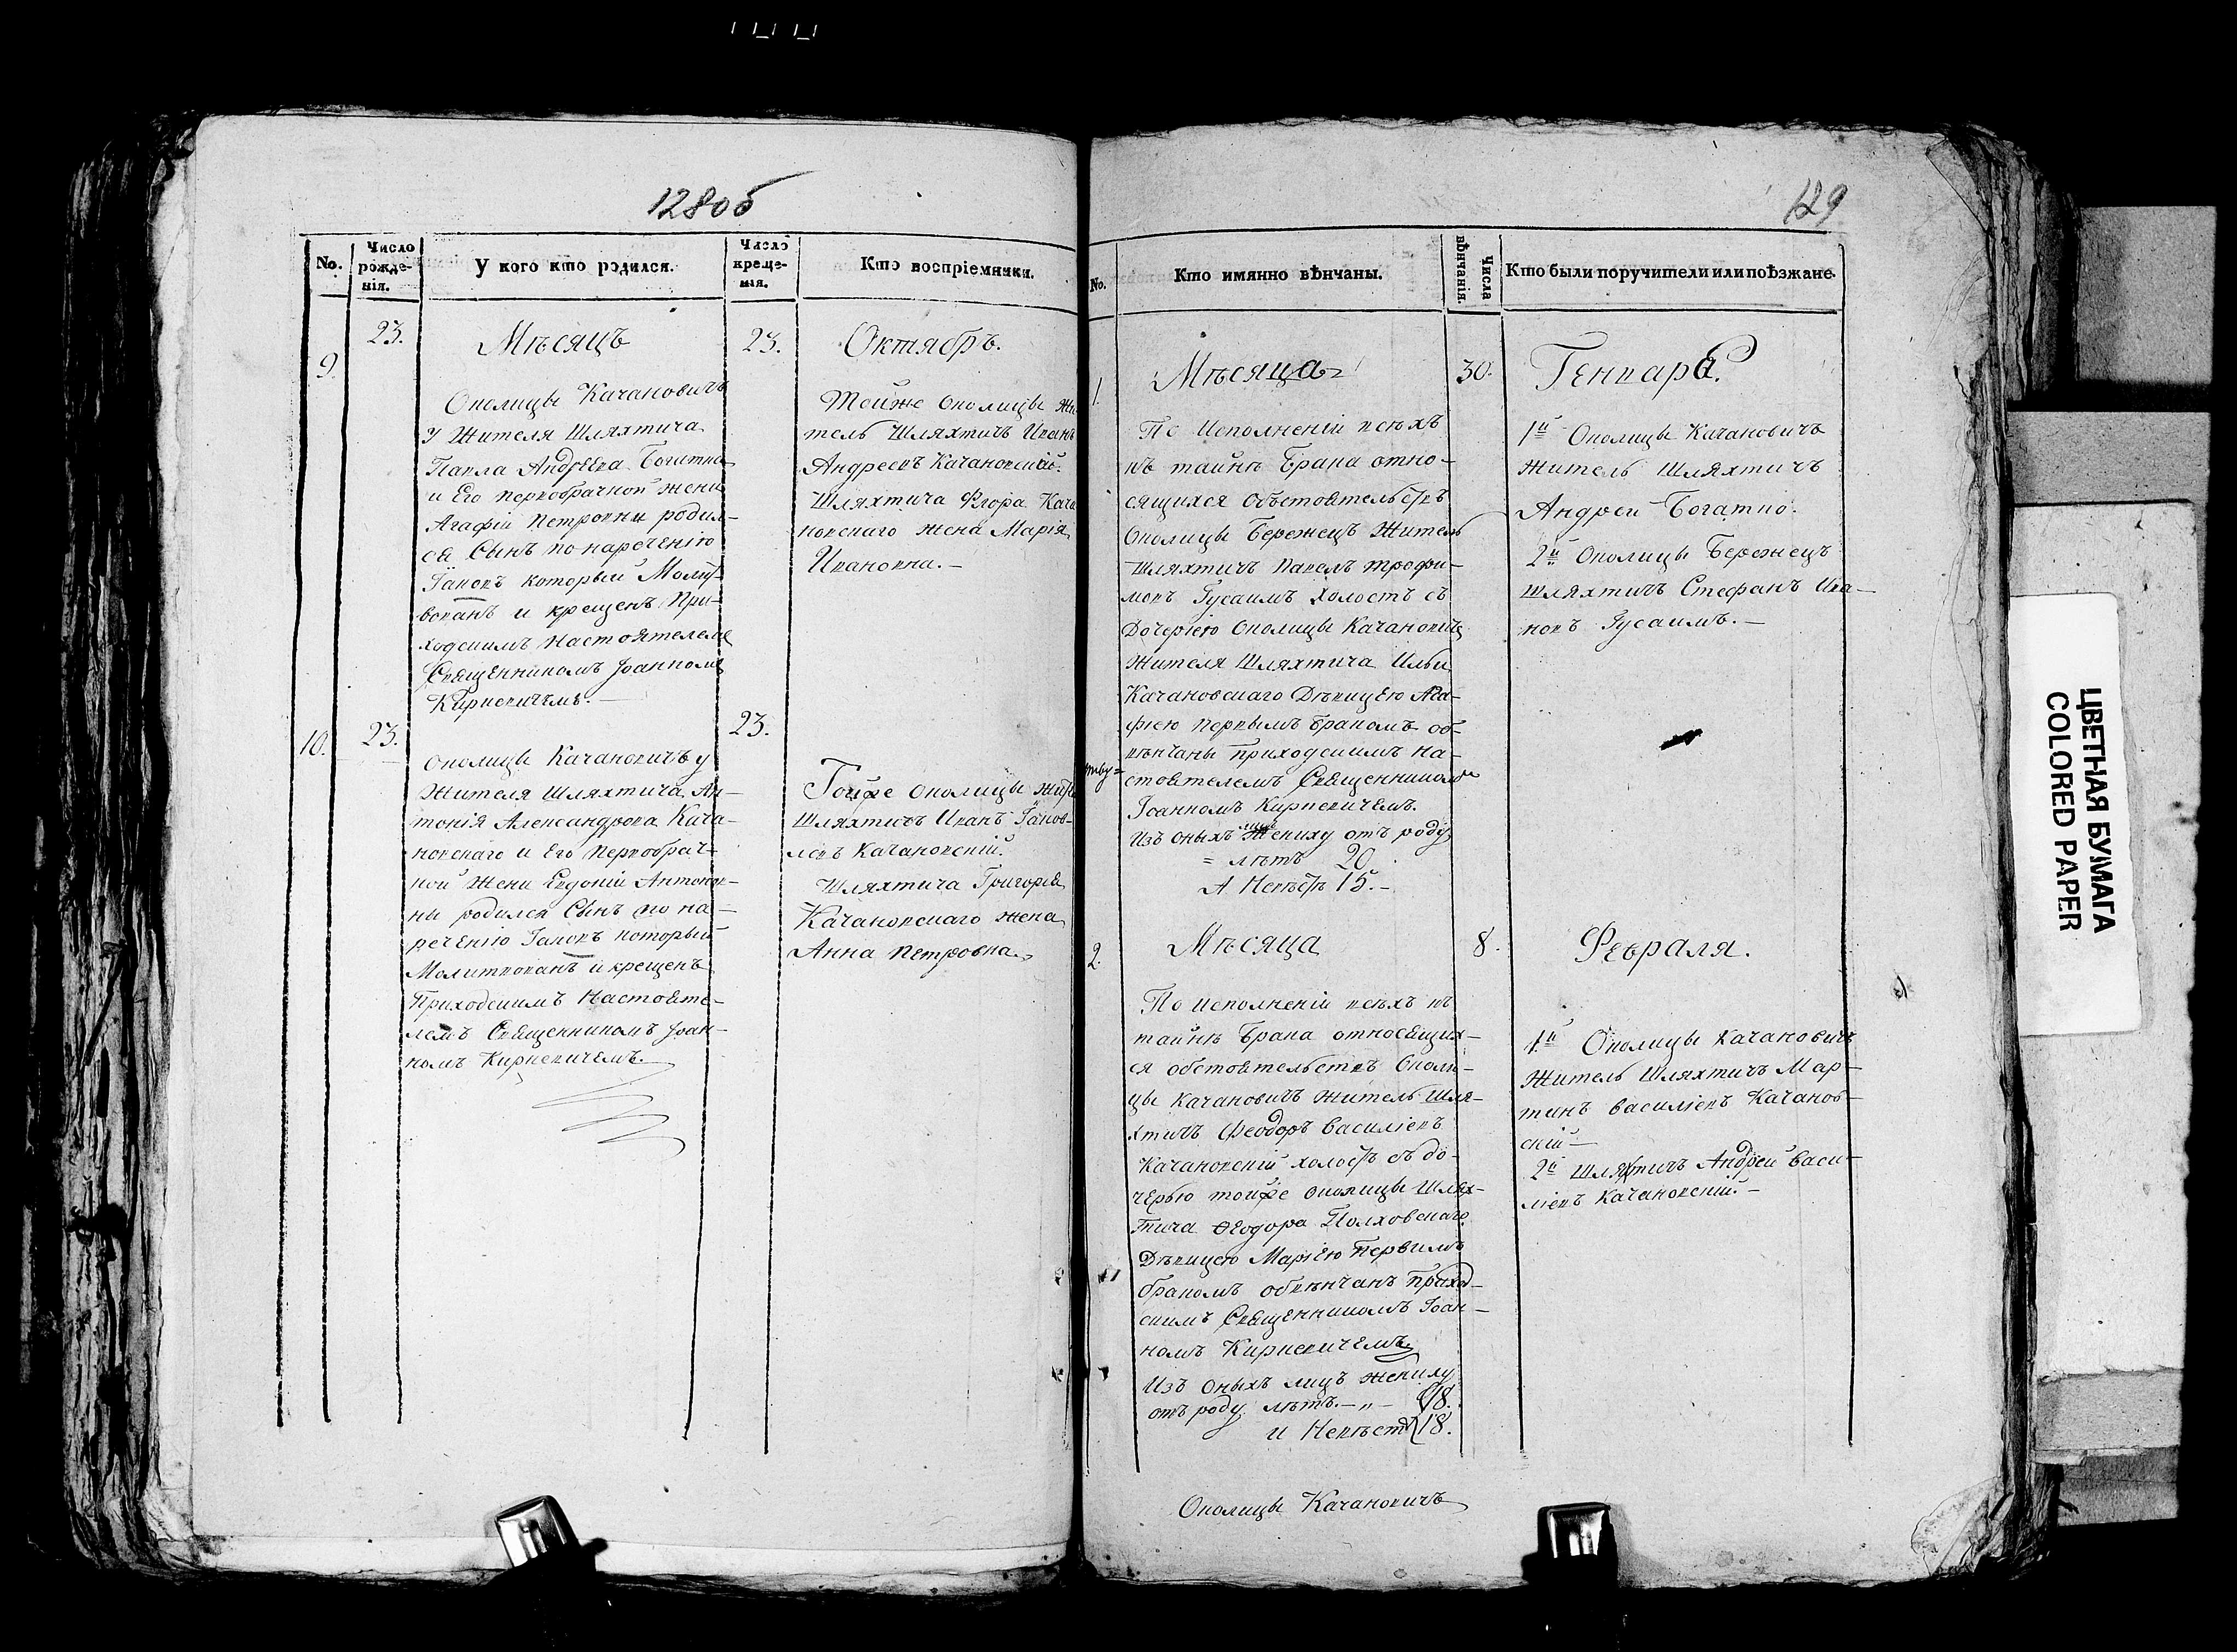 128об
No.
Число рожде-нія.
У кого кто родился.
Число креще-нія.
Кто воспріемники.
9.
23.
Мѣсяцъ
23.
Октябръ.
Околицы Качановичъ
у Жителя Шляхтича
Павла Андреева Богатка
и Его первобрачной жени
Агафіи Петровни родил-
ся Сынъ по нареченію
Іаковъ который Молит-
вованъ и крещенъ При-
ходскимъ Настоятелемъ
Священникомъ Іоанномъ
Киркевичемъ.
Тойже Околицы Жи
тель Шляхтичъ Иванъ
Андреевъ Качановскій.
Шляхтича Флора Кача
новскаго жена Марія
Ивановна. -
10.
23.
23.
Околицы Качановичъ у
Жителя Шляхтича Ан-
тонія Александрова Кача-
новскаго и Его Первобрач-
ной Жени Евдокіи Антонов-
ни родился Сынъ по на-
реченію Іаковъ который
Молитвованъ и крещенъ
Приходскимъ Настояте-
лемъ Священникомъ Іоан-
номъ Киркевичемъ.
Тойже Околицы Жит
Шляхтичъ Иванъ Іаков-
левъ Качановскій.
Шляхтича Григорія
Качановскаго жена
Анна Петровна.
129
No.
Кто имянно вѣнчаны.
Числа вѣнчанія.
Кто были поручители или поѣзжане.
1.
Мѣсяца
30.
Генваря.
По Исполненіи всѣхъ
къ тайнѣ Брака отно-
сящихся Обстоятельствъ
Околицы Бережецъ Житель
Шляхтичъ Павелъ Трофи-
мовъ Гусаимъ Холостъ съ
Дочерію Околицы Качановичъ
Жителя Шляхтича Ильи
Качановскаго Дѣвицею Ага-
фіею первымъ Бракомъ об-
вѣнчаны Приходскимъ На-
стоятелемъ Священникомъ
Іоанномъ Киркевичемъ.
Изъ оныхъ Жениху отъ роду
= лѣтъ 20.
А Невѣстѣ 15. -
1й Околицы Качановичъ
Житель Шляхтичъ
Андрей Богатко.
2й Околицы Бережецъ
Шляхтичъ Стефанъ Ива-
новъ Гусаимъ. -
2.
Мѣсяца
8.
Февраля.
По Исполненіи всѣхъ къ
тайнѣ Брака относящих-
ся обстоятельствъ Околи-
цы Качановичъ Житель Шля-
хтичъ Феодоръ Василіевъ
Качановскій холостъ съ до-
черью тойже Околицы Шлях-
тича Ѳеодора Полховскаго
Дѣвицею Маріею Первимъ
бракомъ обвѣнчанъ Приход-
скимъ Священникомъ Іоан-
номъ Киркевичемъ
Изъ Оныхъ лицъ жениху
отъ роду лѣтъ. - „ - 18.
и Невѣстѣ 18.
1й Околицы Качановичъ
Житель Шляхтичъ Мар-
тинъ Василіевъ Качанов-
скій -
2й Шляхтичъ Андрей Васи-
ліевъ Качановскій. -
Околицы Качановичъ
ЦВЕТНАЯ БУМАГА
COLORED PAPER